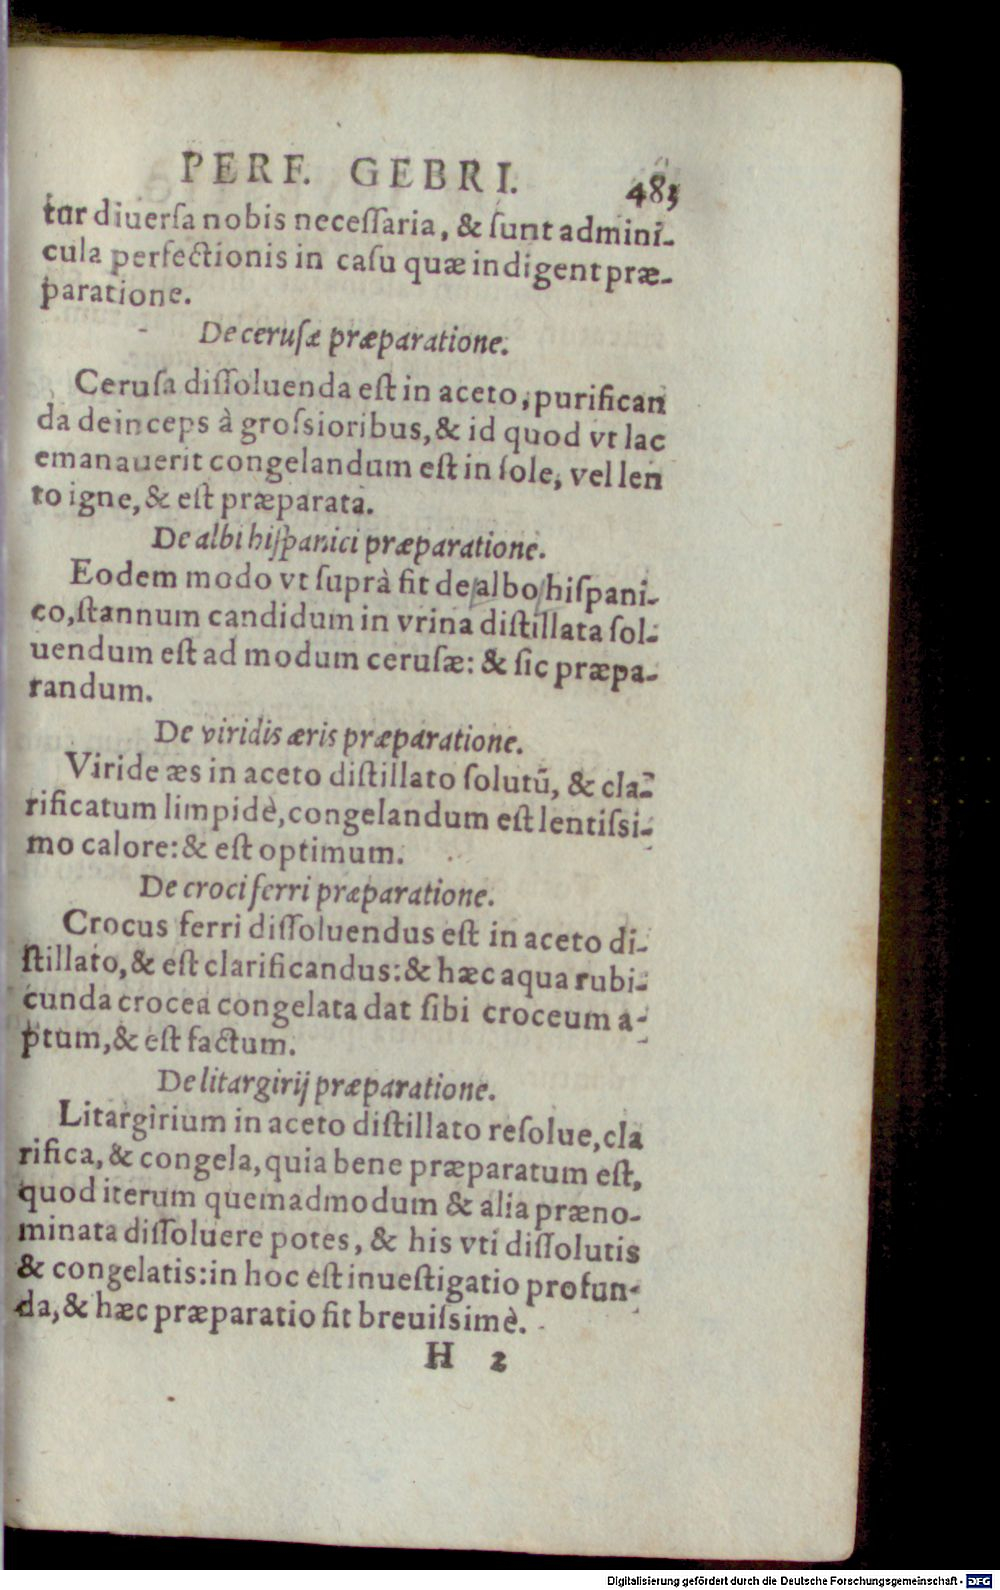 PERF. GEBRI. 483
tur diuerſa nobis neceſſaria, & ſunt admini-
cula perfectionis in caſu quæ indigent præ-
paratione.
De ceruſæ præparatione.
Ceruſa diſſoluenda eſt in aceto, purifican
da deinceps à groſsioribus, & id quod vt lac
emanauerit congelandum eſt in ſole, vel len
to igne, & eſt præparata.
De albi hiſpanici præparatione.
Eodem modo vt ſuprà fit de albo hiſpani-
co, ſtannum candidum in vrina diſtillata ſol-
uendum eſt ad modum ceruſæ: & ſic præpa-
randum.
De viridis æris præparatione.
Viride æs in aceto diſtillato ſolutū, & cla-
rificatum limpidè, congelandum eſt lentiſsi-
mo calore: & eſt optimum.
De croci ferri præparatione.
Crocus ferri diſſoluendus eſt in aceto di-
ſtillato, & eſt clarificandus: & hæc aqua rubi-
cunda crocea congelata dat ſibi croceum a-
ptum, & eſt factum.
De litargirij præparatione.
Litargirium in aceto diſtillato reſolue, cla
rifica, & congela, quia bene præparatum eſt,
quod iterum quemadmodum & alia præno-
minata diſſoluere potes, & his vti diſſolutis
& congelatis: in hoc eſt inueſtigatio profun-
da, & hæc præparatio fit breuiſsimè.
H 2
Digitalisierung gefördert durch die Deutsche Forschungsgemeinschaft - DFG